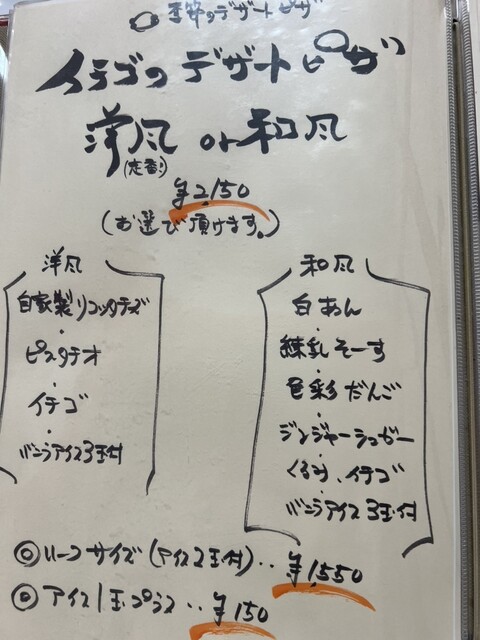 季節のデザートピザ
イチゴの デザートピザ
洋風 or 和風
(定番!)
¥2,150
(お選び頂けます。)
洋風
自家製リコッタチーズ
・
ピスタチオ
・
イチゴ
・
バニラアイス3玉付
和風
白あん
・
練乳そーす
・
色彩だんご
・
ジンジャーシュガー
・
くるみ、イチゴ
・
バニラアイス3玉付
◎ハーフサイズ(アイス2玉付)‥¥1,550
◎アイス1玉プラス‥¥150